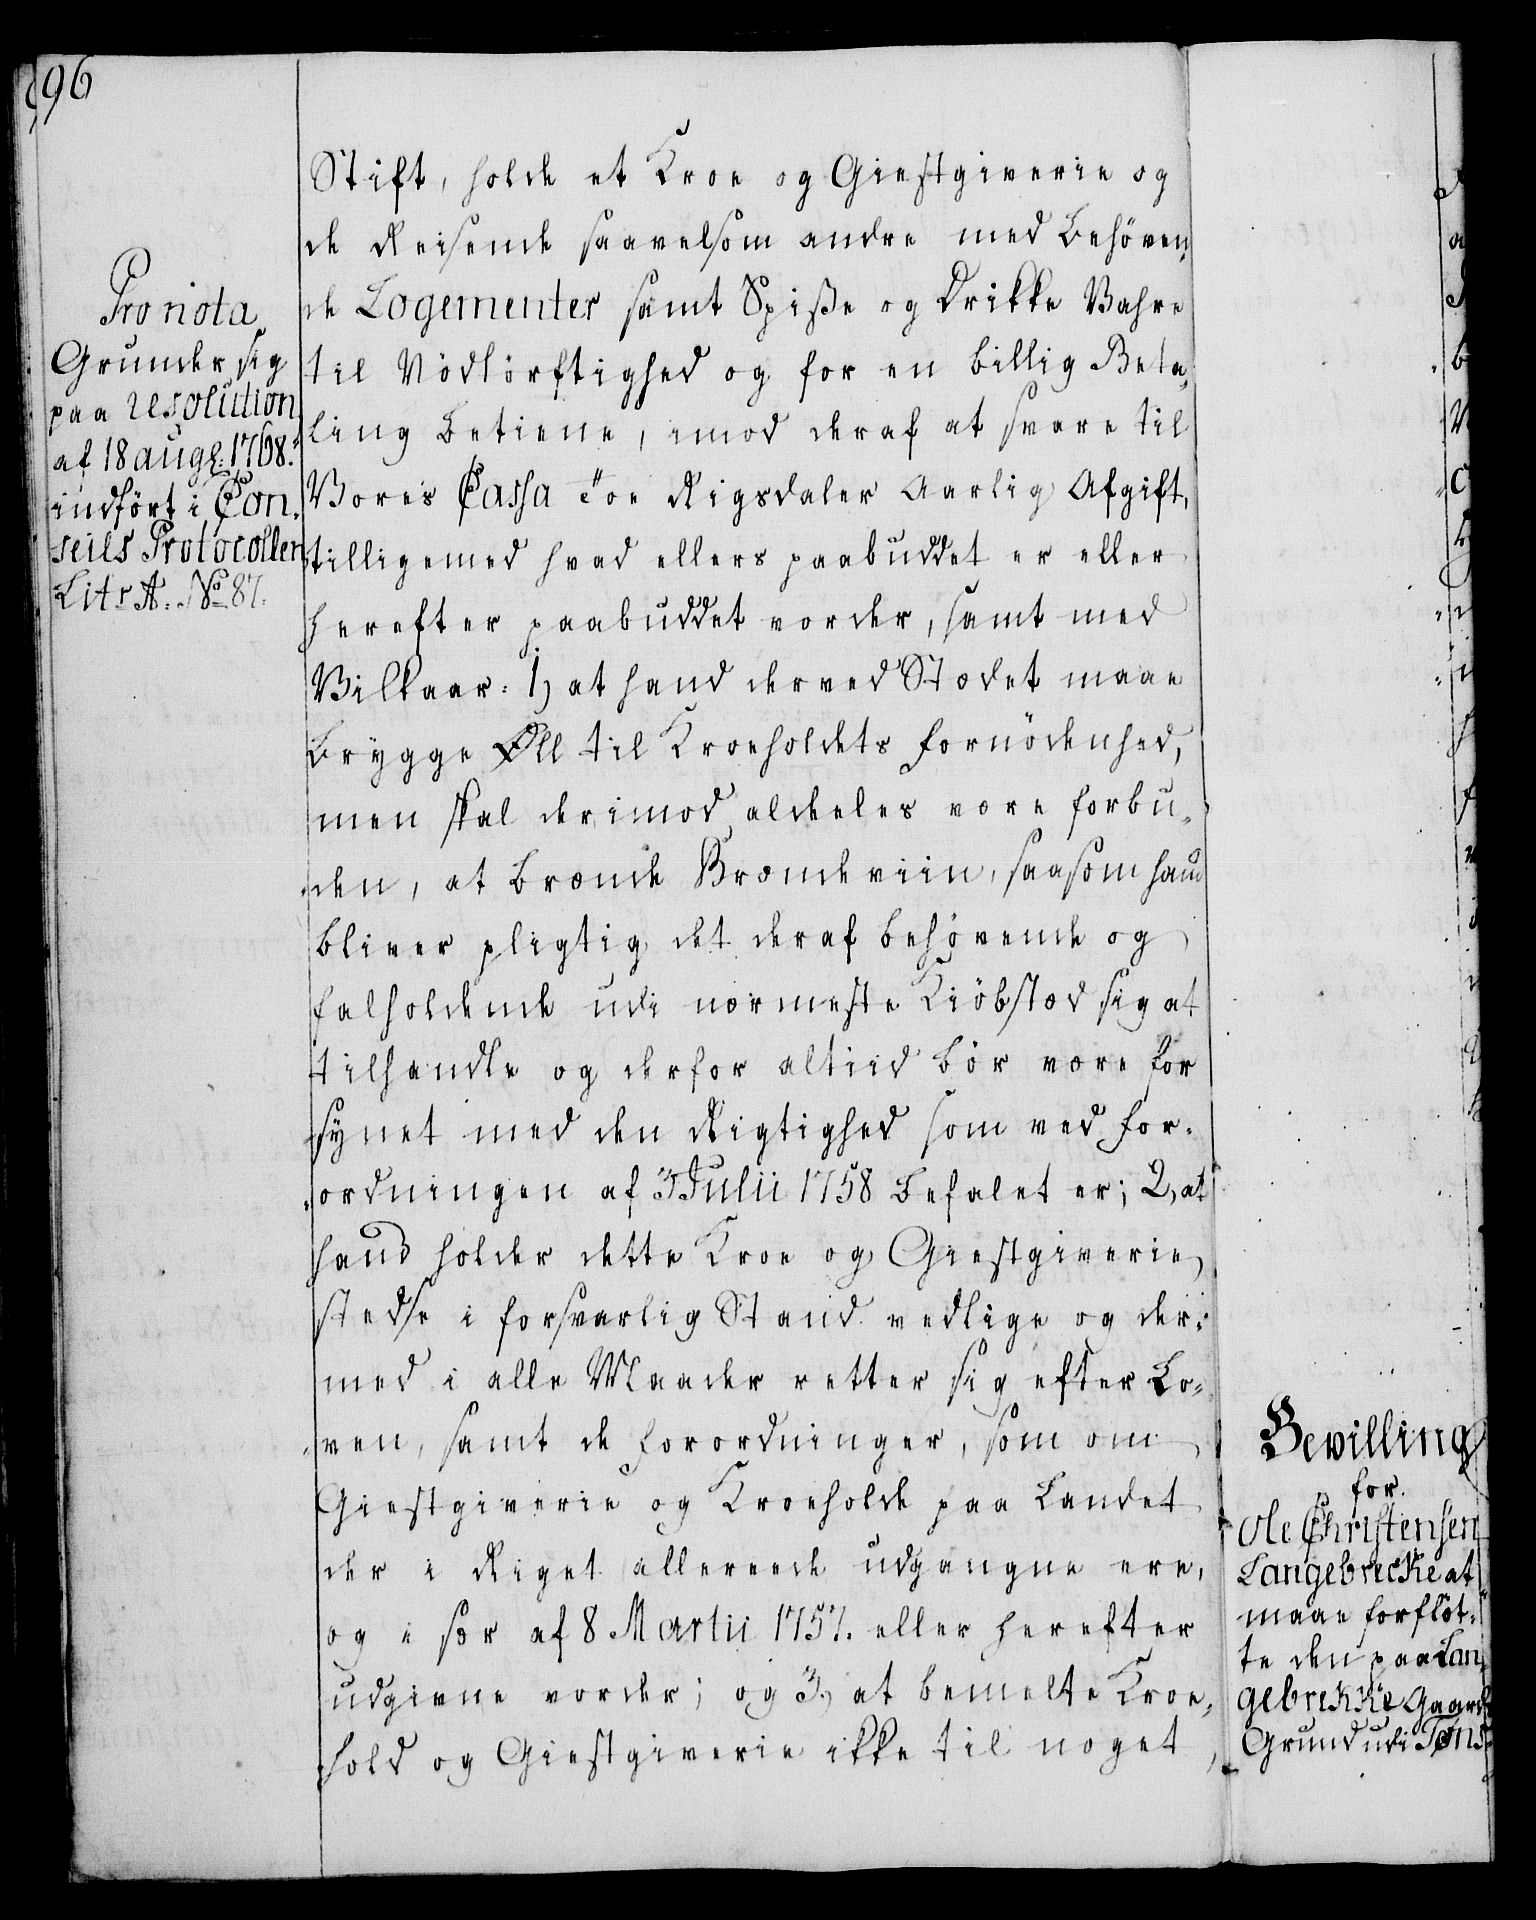 96
Pro nota
Grunder sig
paa resolution
af 18 aug: 1768.
indført i Con,
seils Protocollen
Litr A. No 87.
Stift, holde et Kroe og Giestgiverie og
de Reisende saavelsom andre med behöven,
de Logementer samt Spiße og Drikke Vahre
til Nödtörftighed og for en billig Beta,
ling betiene, imod deraf at svare til
Vores Cassa Toe Rigsdaler Aarlig Afgift,
tilligemed hvad ellers paabuddet er eller
herefter paabuddet vorder, samt med
Vilkaar: 1) at hand der ved Stædet maae
brygge Øll til Kroeholdets fornödenhed,
men skal derimod aldeeles være forbu,,
den, at brænde Brændeviin, saasom hand
bliver pligtig det deraf behøvende og
falholdende udi nærmeste Kiöbstæd sig at
tilhandle og derfor altiid bör være for
synet med den Rigtighed som ved for-
ordningen af 3 Julii 1758 befalet er; 2, at
hand holder dette Kroe og Giestgiverie
stedse i forsvarlig Stand vedlige og der:
med i alle Maader retter sig efter Lo-
ven, samt de forordninger, som om
Giestgiverie og Kroeholde paa Landet
der i Riget allereede udgangne ere,
og i sær af 8 Martii 1757. eller herefter
udgivne vorder; og 3, at bemelte Kroe,
hold og Giestgiverie ikke til noget
Bevilling
for
Ole Christensen
Langebrecke at
maae forflöt-
te den paa Lan,
gebrekke Gaards
Grund udi Töns-